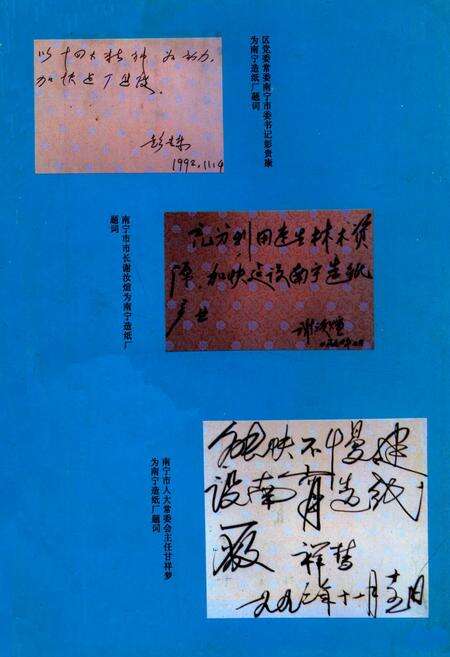 以十四大精神为动力,
加快建厂进度。
彭贵康
1992.11.4
区党委常委南宁市委书记彭贵康
为南宁造纸厂题词
充分利用速生林木资
源,加快建设南宁造纸
谢汝煊
南宁市市长谢汝煊为南宁造纸厂
题词
能快不慢建
设南宁造纸
厂 祥梦
一九九二年十一月
南宁市人大常委会主任甘祥梦
为南宁造纸厂题词